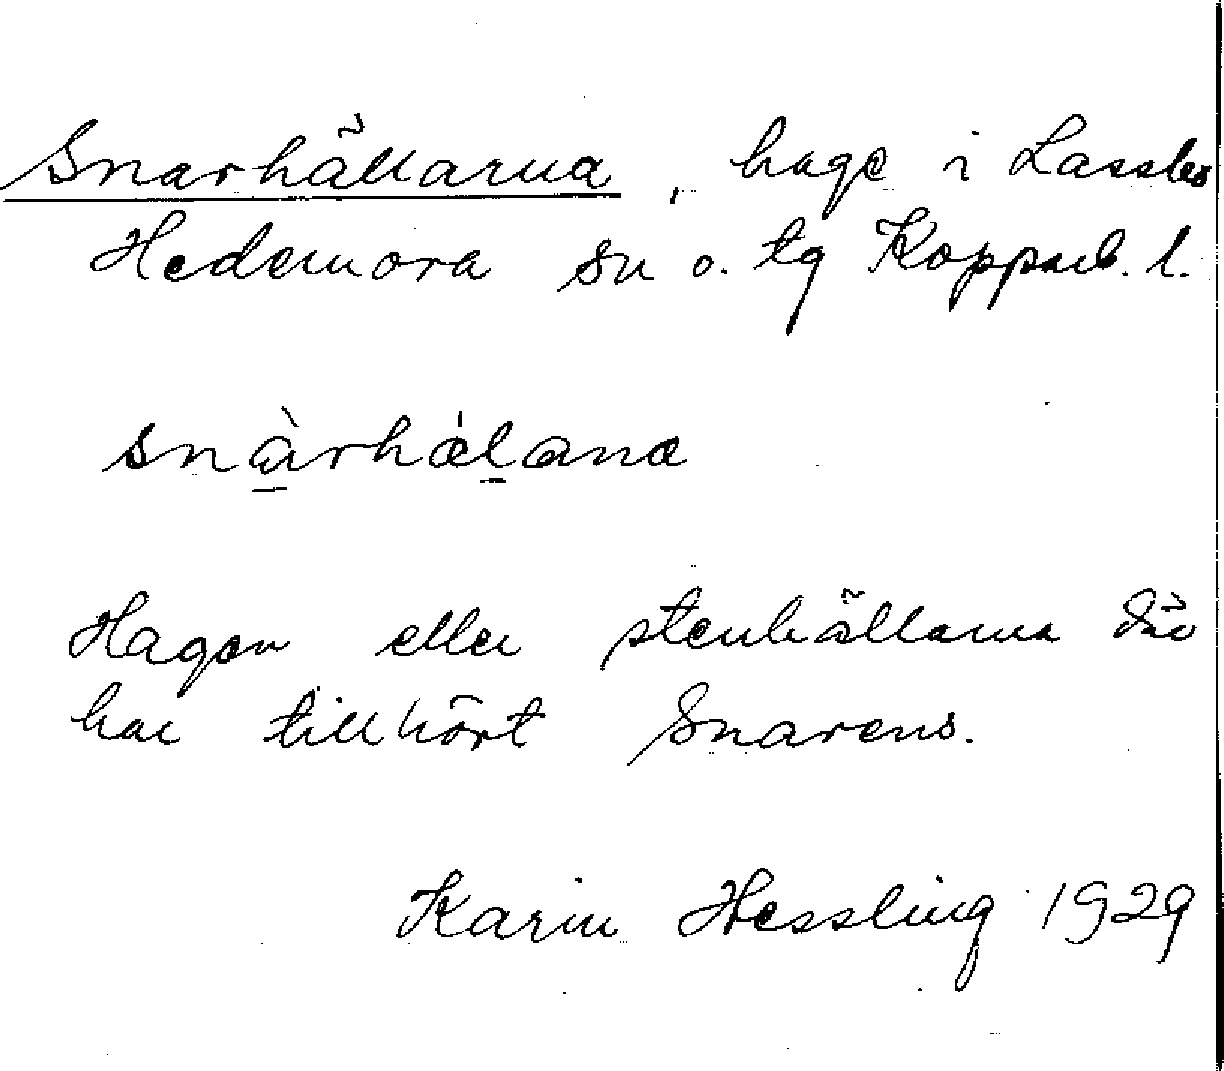 Snarhällarna, hage i Lassbo
Hedemora sn o. tg Kopparb. l.
snàrhǽlana
Hagen eller stenhällarna där
har tillhört Snarens.
Karin Hessling 1929